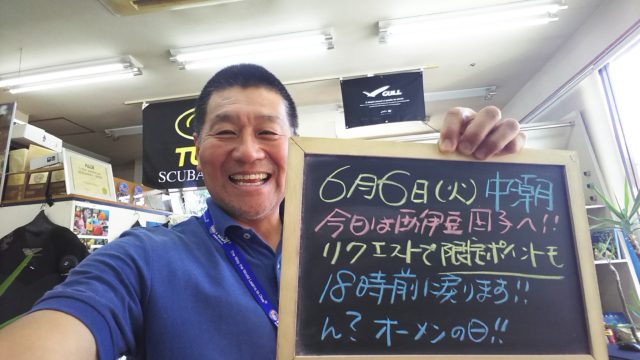 GULL
TU
SCUBA
PADI
6月6日(火) 中潮
今日は西伊豆田子へ!!
リクエストで限定ポイントも
18時前に戻ります!!
ん? オーメンの日!!